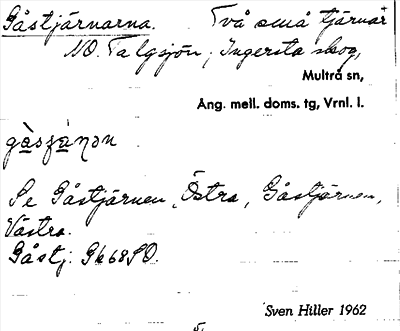 Gåstjärnarna. Två små tjärnar
NO. Talgsjön, Ingersta skog,
Multrå sn,
Ang. mell. doms. tg, Vrnl. l.
Se Gåstjärnen, Östra, Gåstjärnen,
Västra.
Gåstj: Gb68SO.
Sven Hiller 1962
5.